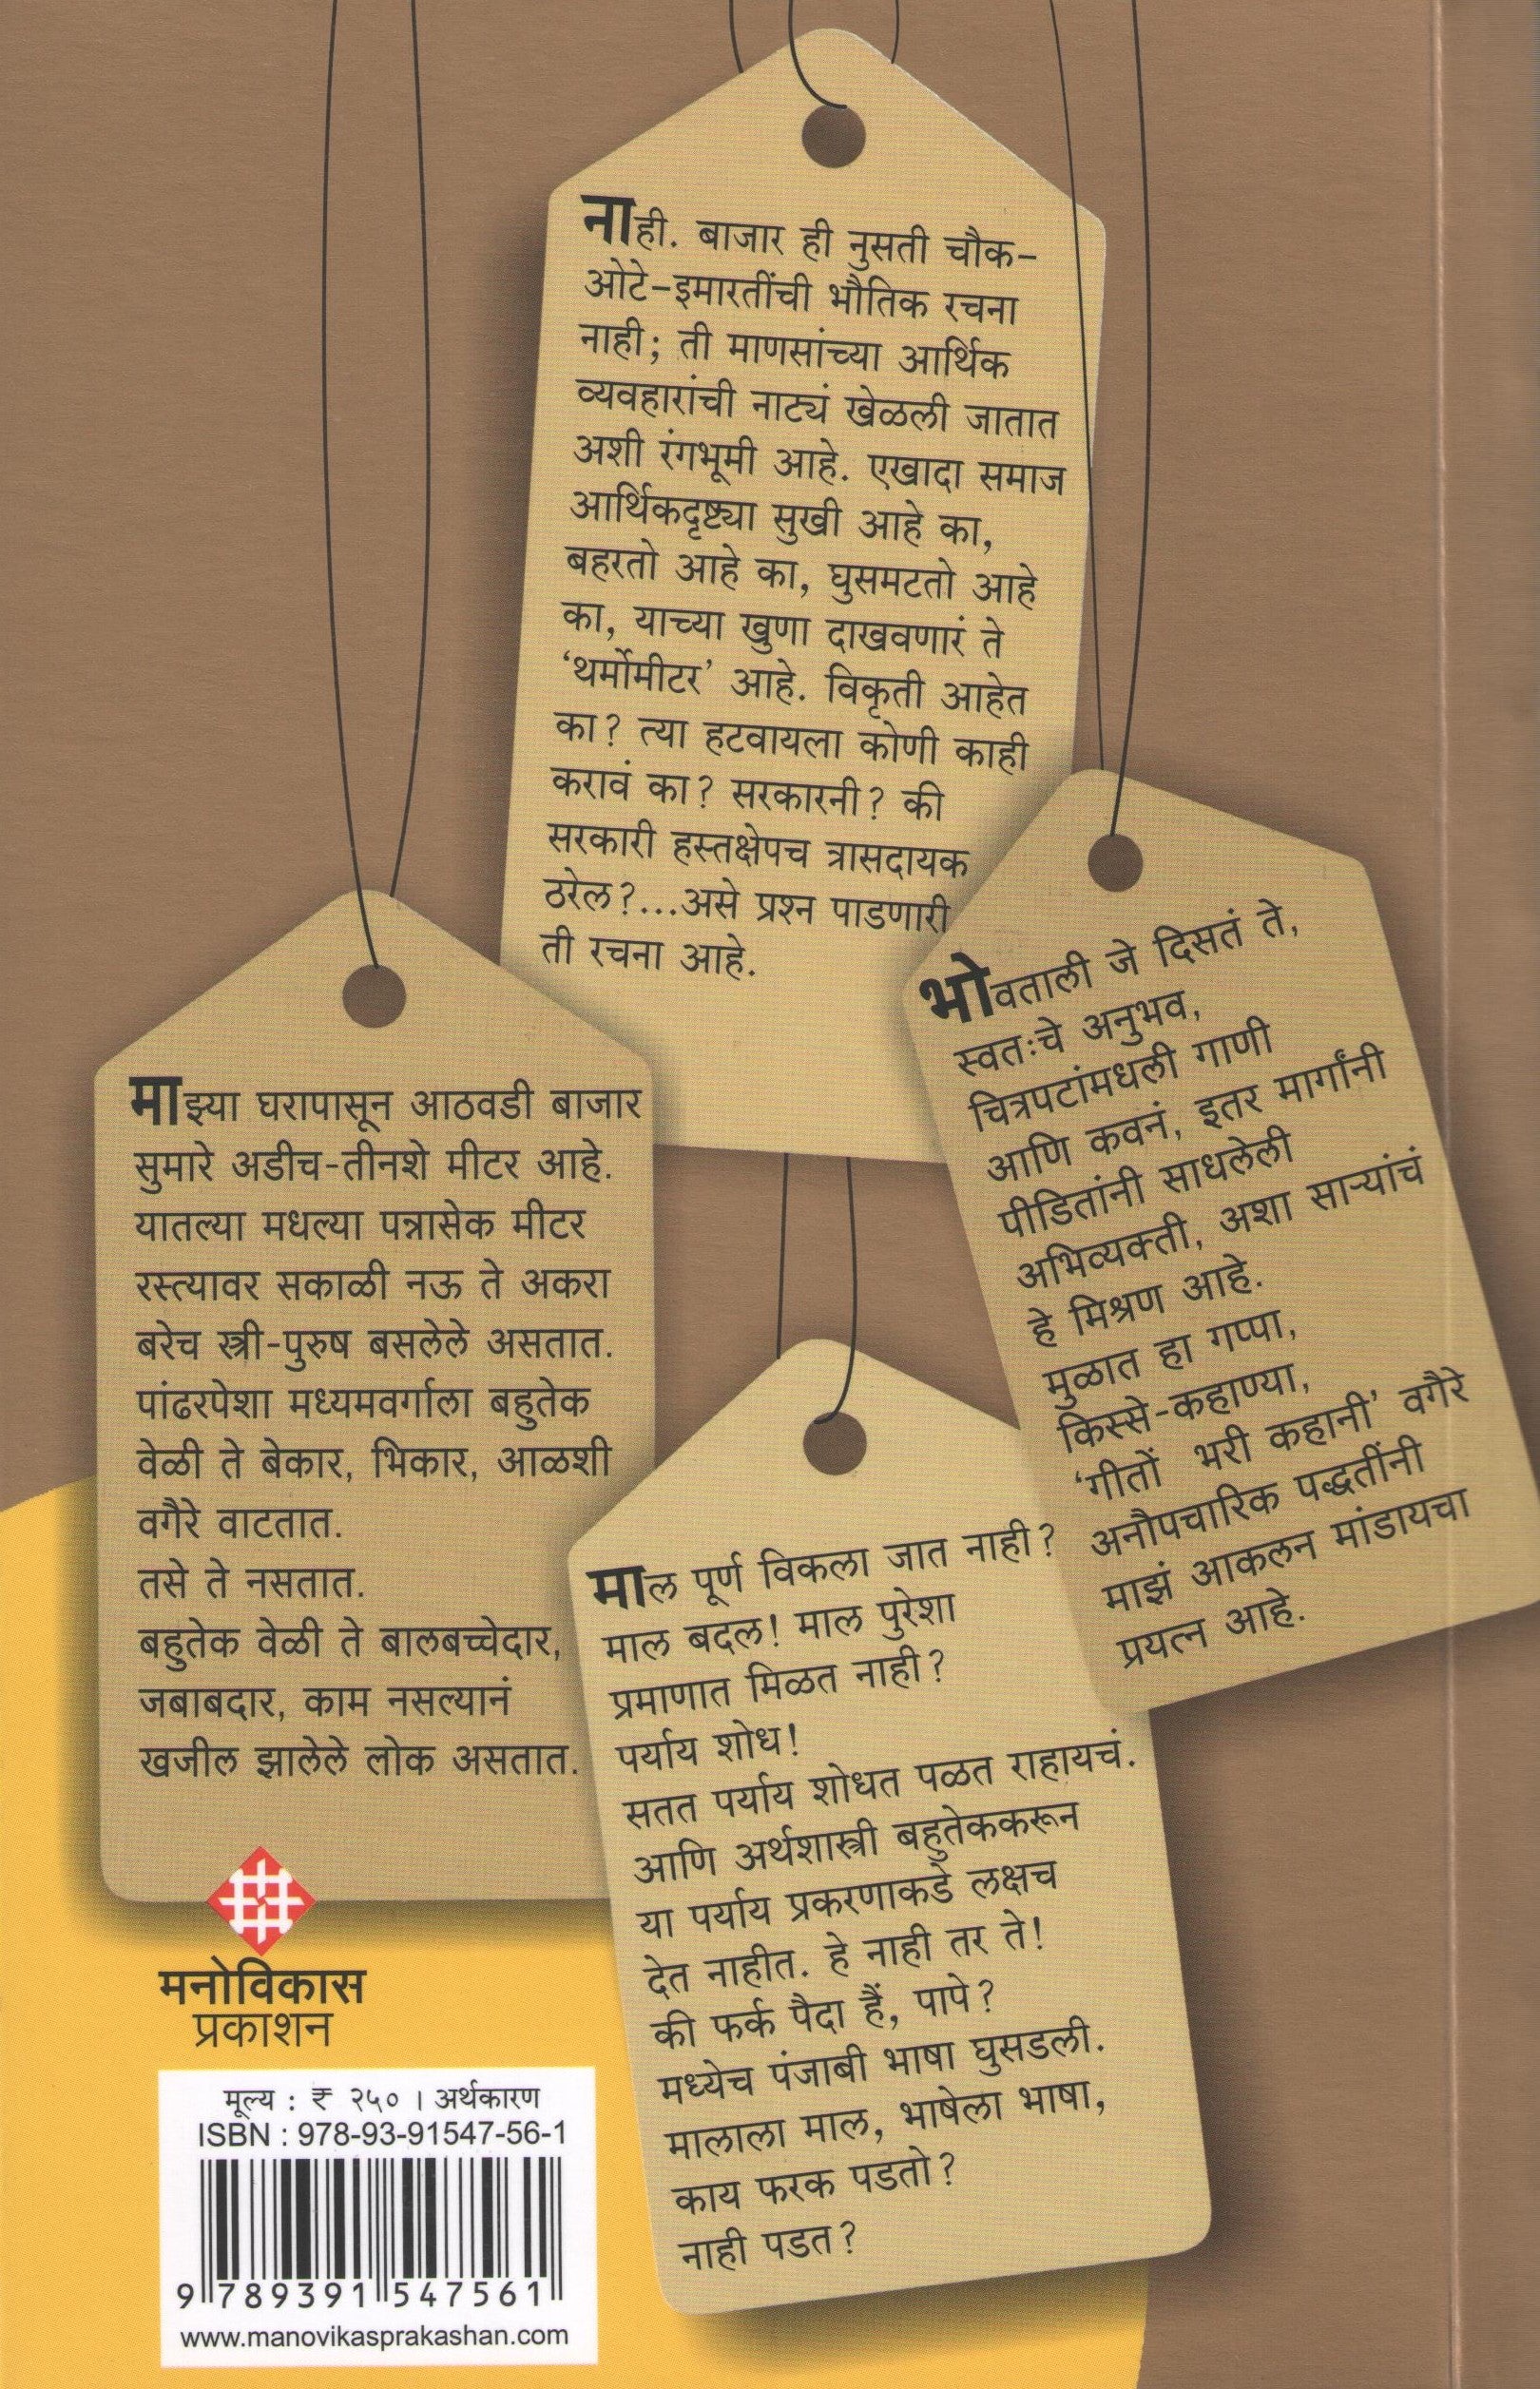 नाही. बाजार ही नुसती चौक-
ओटे-इमारतींची भौतिक रचना
नाही; ती माणसांच्या आर्थिक
व्यवहारांची नाट्यं खेळली जातात
अशी रंगभूमी आहे. एखादा समाज
आर्थिकदृष्ट्या सुखी आहे का,
बहरतो आहे का, घुसमटतो आहे
का, याच्या खुणा दाखवणारं ते
‘थर्मोमीटर’ आहे. विकृती आहेत
का? त्या हटवायला कोणी काही
करावं का? सरकारनी? की
सरकारी हस्तक्षेपच त्रासदायक
ठरेल?...असे प्रश्न पाडणारी
ती रचना आहे.
भोवताली जे दिसतं ते,
स्वतःचे अनुभव,
चित्रपटांमधली गाणी
आणि कवनं, इतर मार्गांनी
पीडितांनी साधलेली
अभिव्यक्ती, अशा साऱ्यांचं
हे मिश्रण आहे.
मुळात हा गप्पा,
किस्से-कहाण्या,
‘गीतों भरी कहानी’ वगैरे
अनौपचारिक पद्धतींनी
माझं आकलन मांडायचा
प्रयत्न आहे.
माझ्या घरापासून आठवडी बाजार
सुमारे अडीच-तीनशे मीटर आहे.
यातल्या मधल्या पन्नासेक मीटर
रस्त्यावर सकाळी नऊ ते अकरा
बरेच स्त्री-पुरुष बसलेले असतात.
पांढरपेशा मध्यमवर्गाला बहुतेक
वेळी ते बेकार, भिकार, आळशी
वगैरे वाटतात.
तसे ते नसतात.
बहुतेक वेळी ते बालबच्चेदार,
जबाबदार, काम नसल्यानं
खजील झालेले लोक असतात.
माल पूर्ण विकला जात नाही?
माल बदल! माल पुरेशा
प्रमाणात मिळत नाही?
पर्याय शोध!
सतत पर्याय शोधत पळत राहायचं.
आणि अर्थशास्त्री बहुतेककरून
या पर्याय प्रकरणाकडे लक्षच
देत नाहीत. हे नाही तर ते!
की फर्क पैदा हैं, पापे?
मध्येच पंजाबी भाषा घुसडली.
मालाला माल, भाषेला भाषा,
काय फरक पडतो?
नाही पडत?
मनोविकास
प्रकाशन
मूल्य : ₹ २५० । अर्थकारण
ISBN : 978-93-91547-56-1
9 789391 547561
www.manovikasprakashan.com